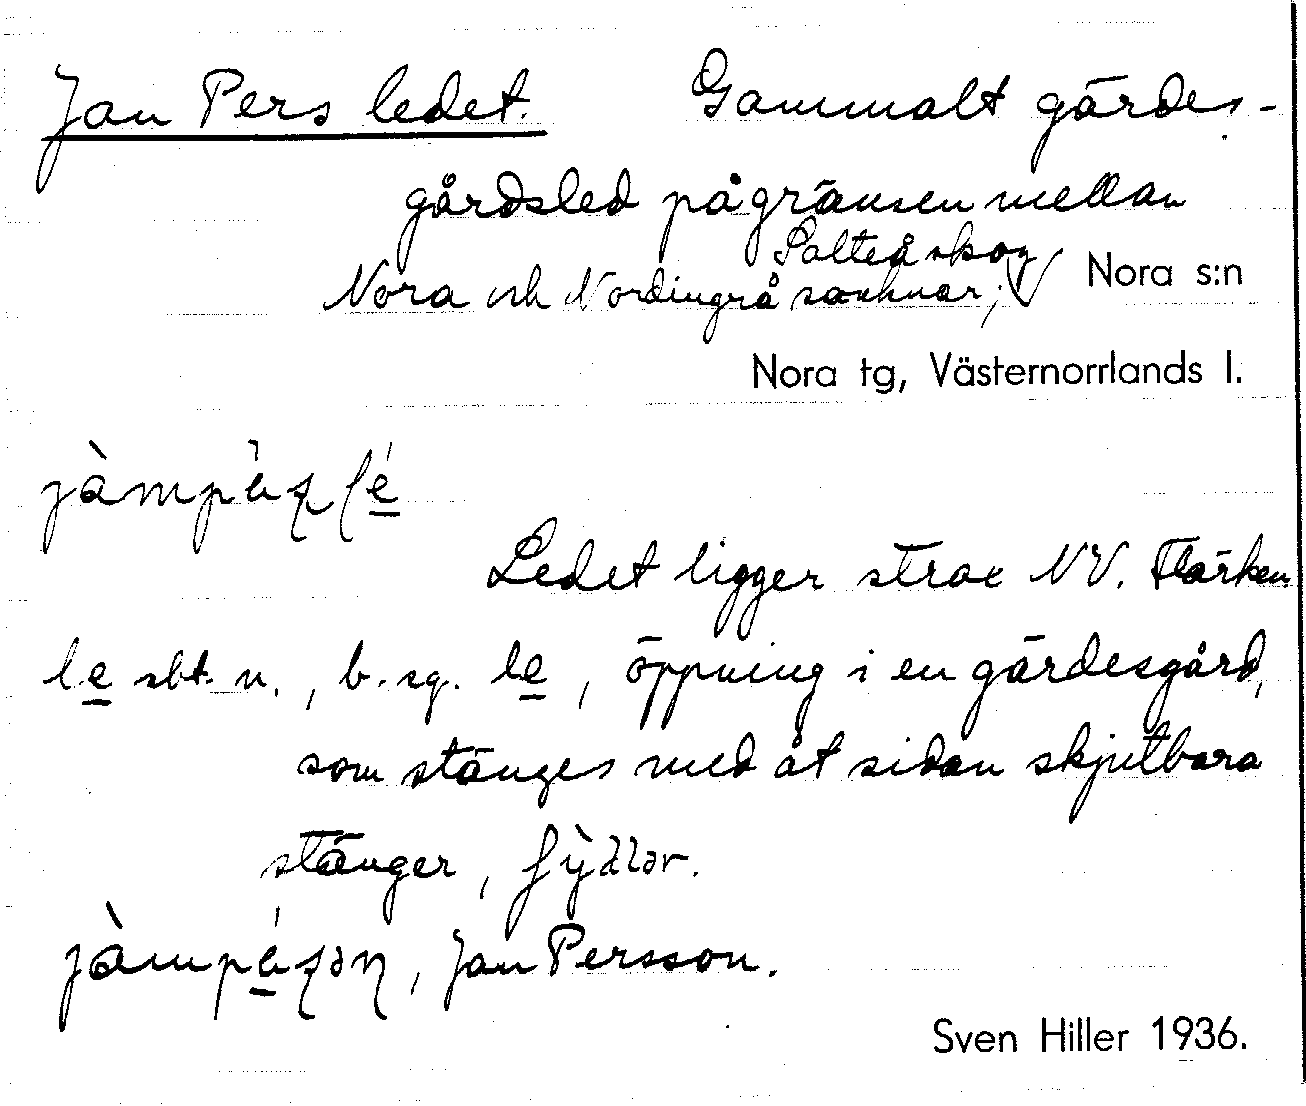 Jan Pers ledet. Gammalt gärdes-
gårdsled på gränsen mellan
Salteå skog
Nora och Nordingrå socknar, Nora s:n
Nora tg, Västernorrlands l.
Ledet ligger strax NV. Flärken
le sbt. n., b. sg. le, öppning i en gärdesgård,
som stänges med åt sidan skjutbara
stänger,
Jan Persson.
Sven Hiller 1936.